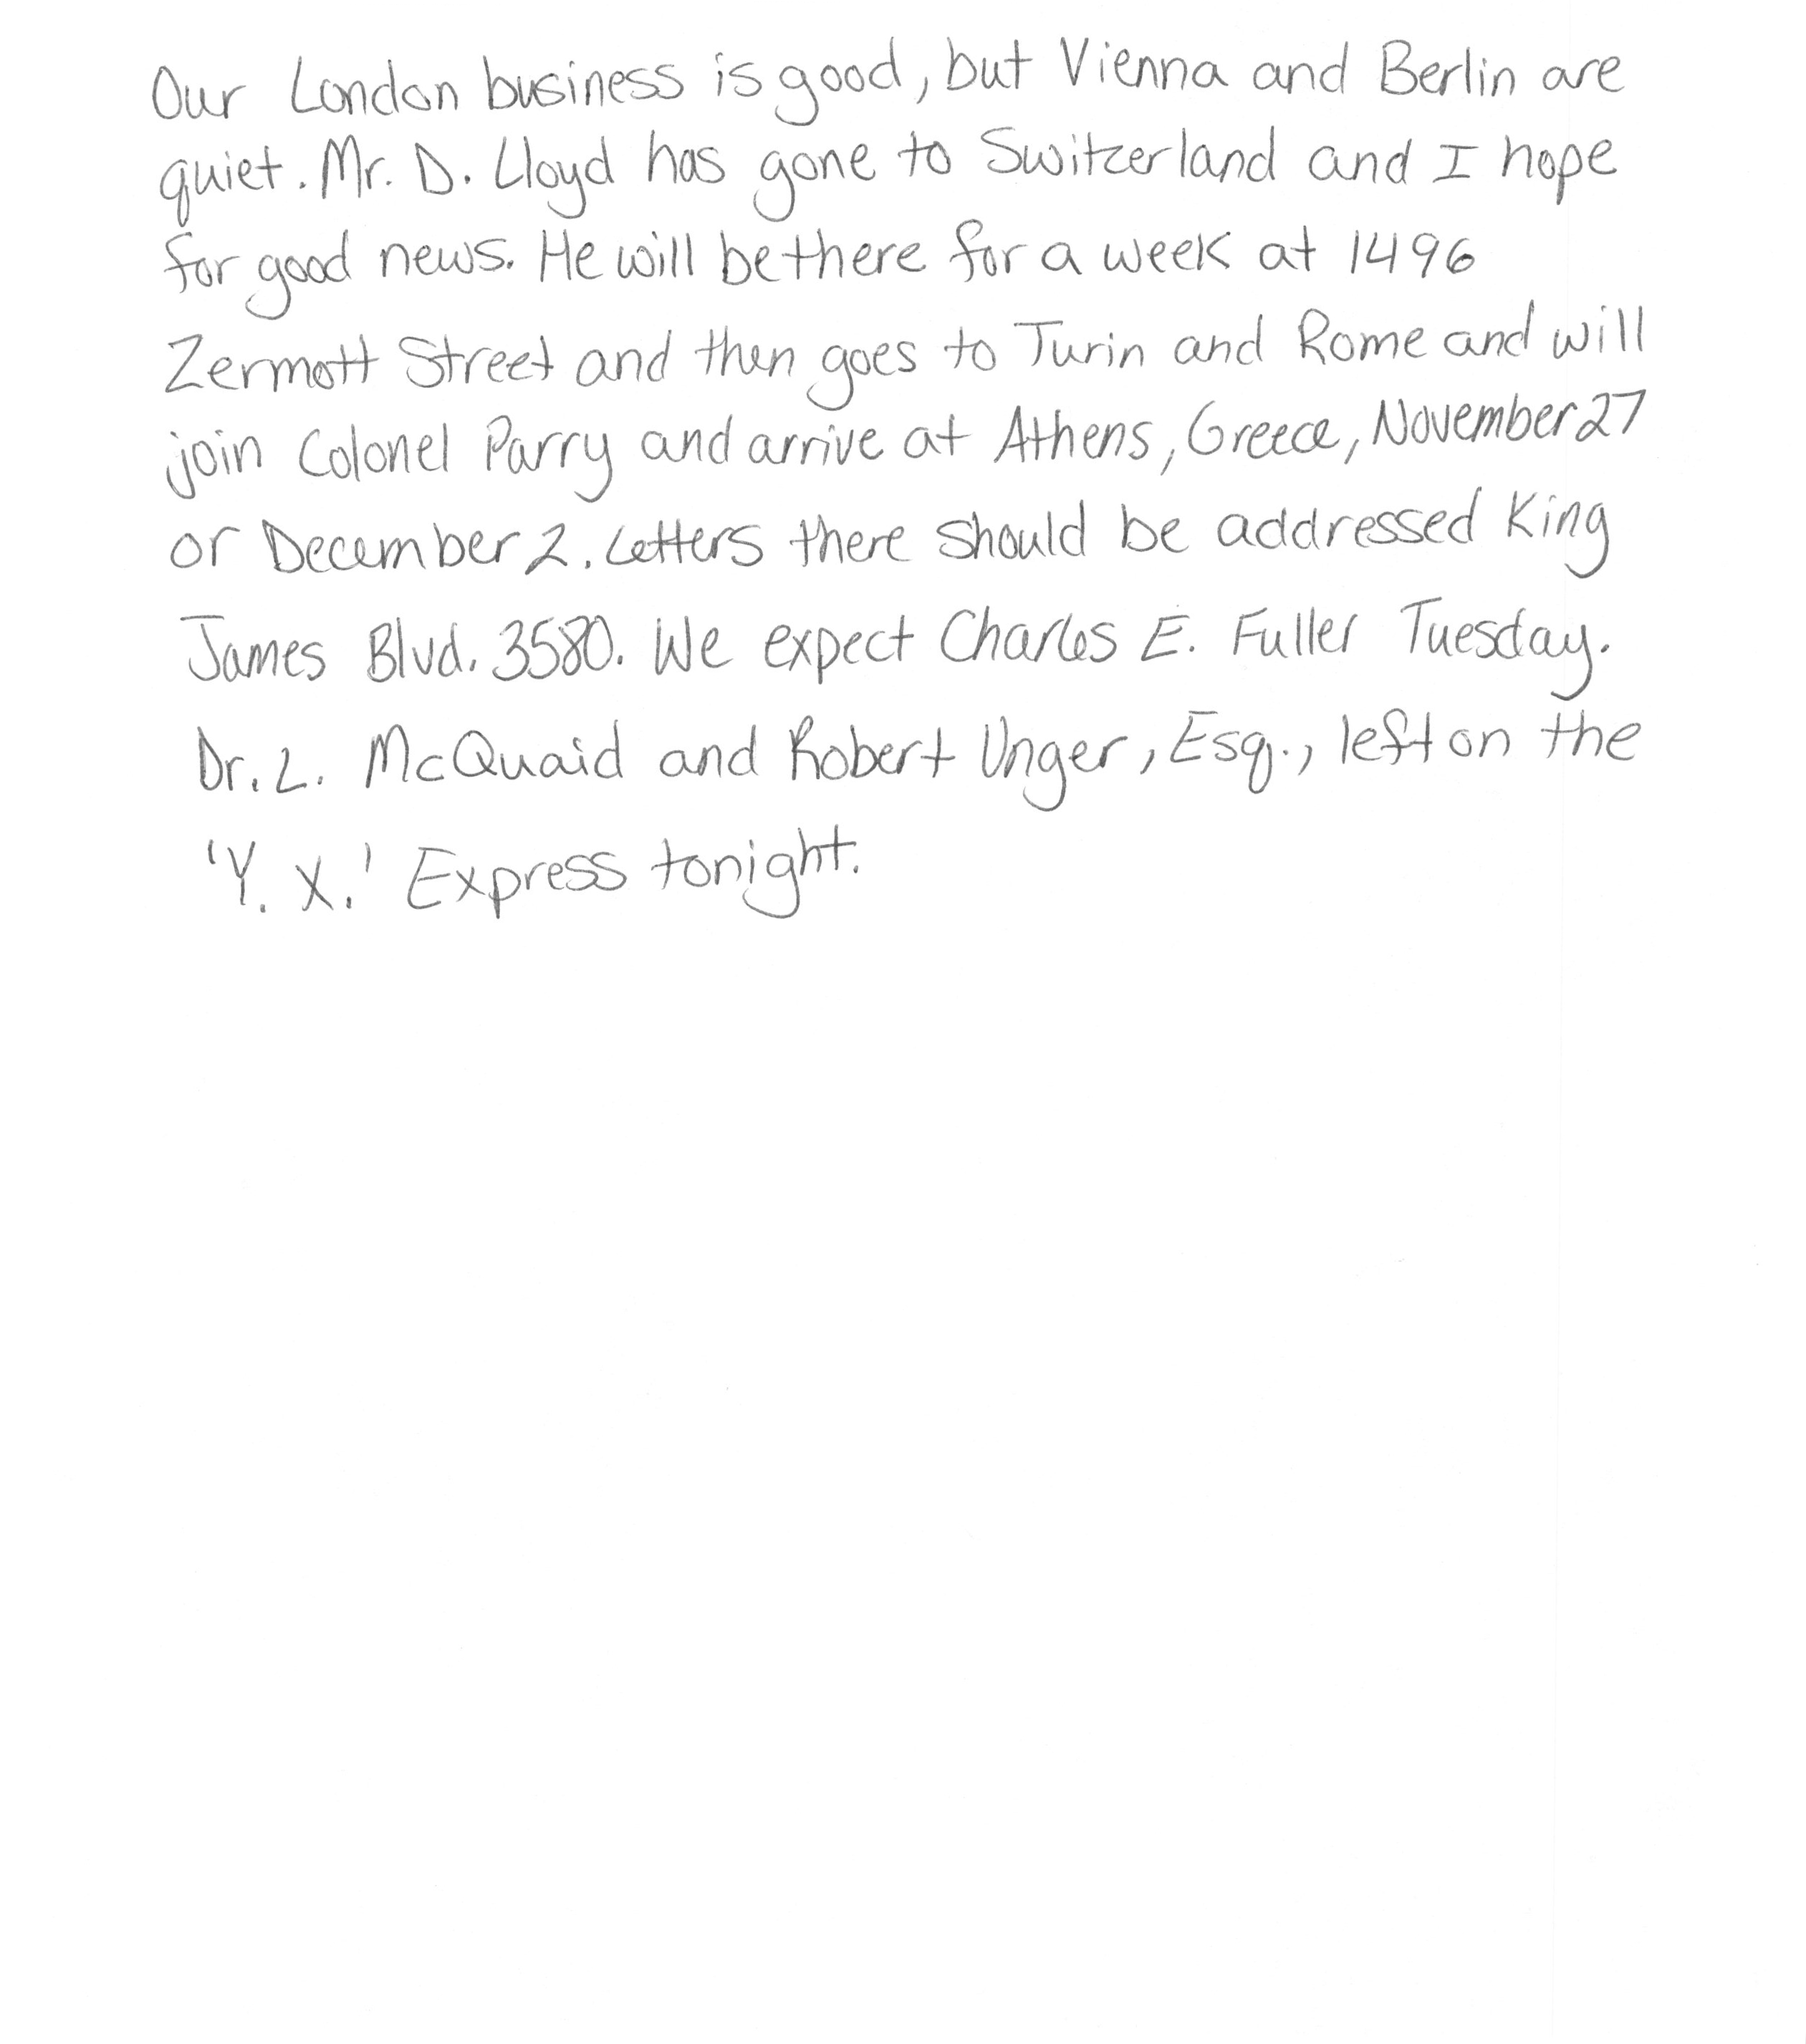 Our London business is good, but Vienna and Berlin are
quiet. Mr. D. Lloyd has gone to Switzerland and I hope
for good news. He will be there for a week at 1496
Zermott Street and then goes to Turin and Rome and will
join Colonel Parry and arrive at Athens, Greece, November 27
or December 2. Letters there should be addressed King
James Blvd. 3580. We expect Charles E. Fuller Tuesday.
Dr. L. McQuaid and Robert Unger, Esq., left on the
'Y. X.' Express tonight.